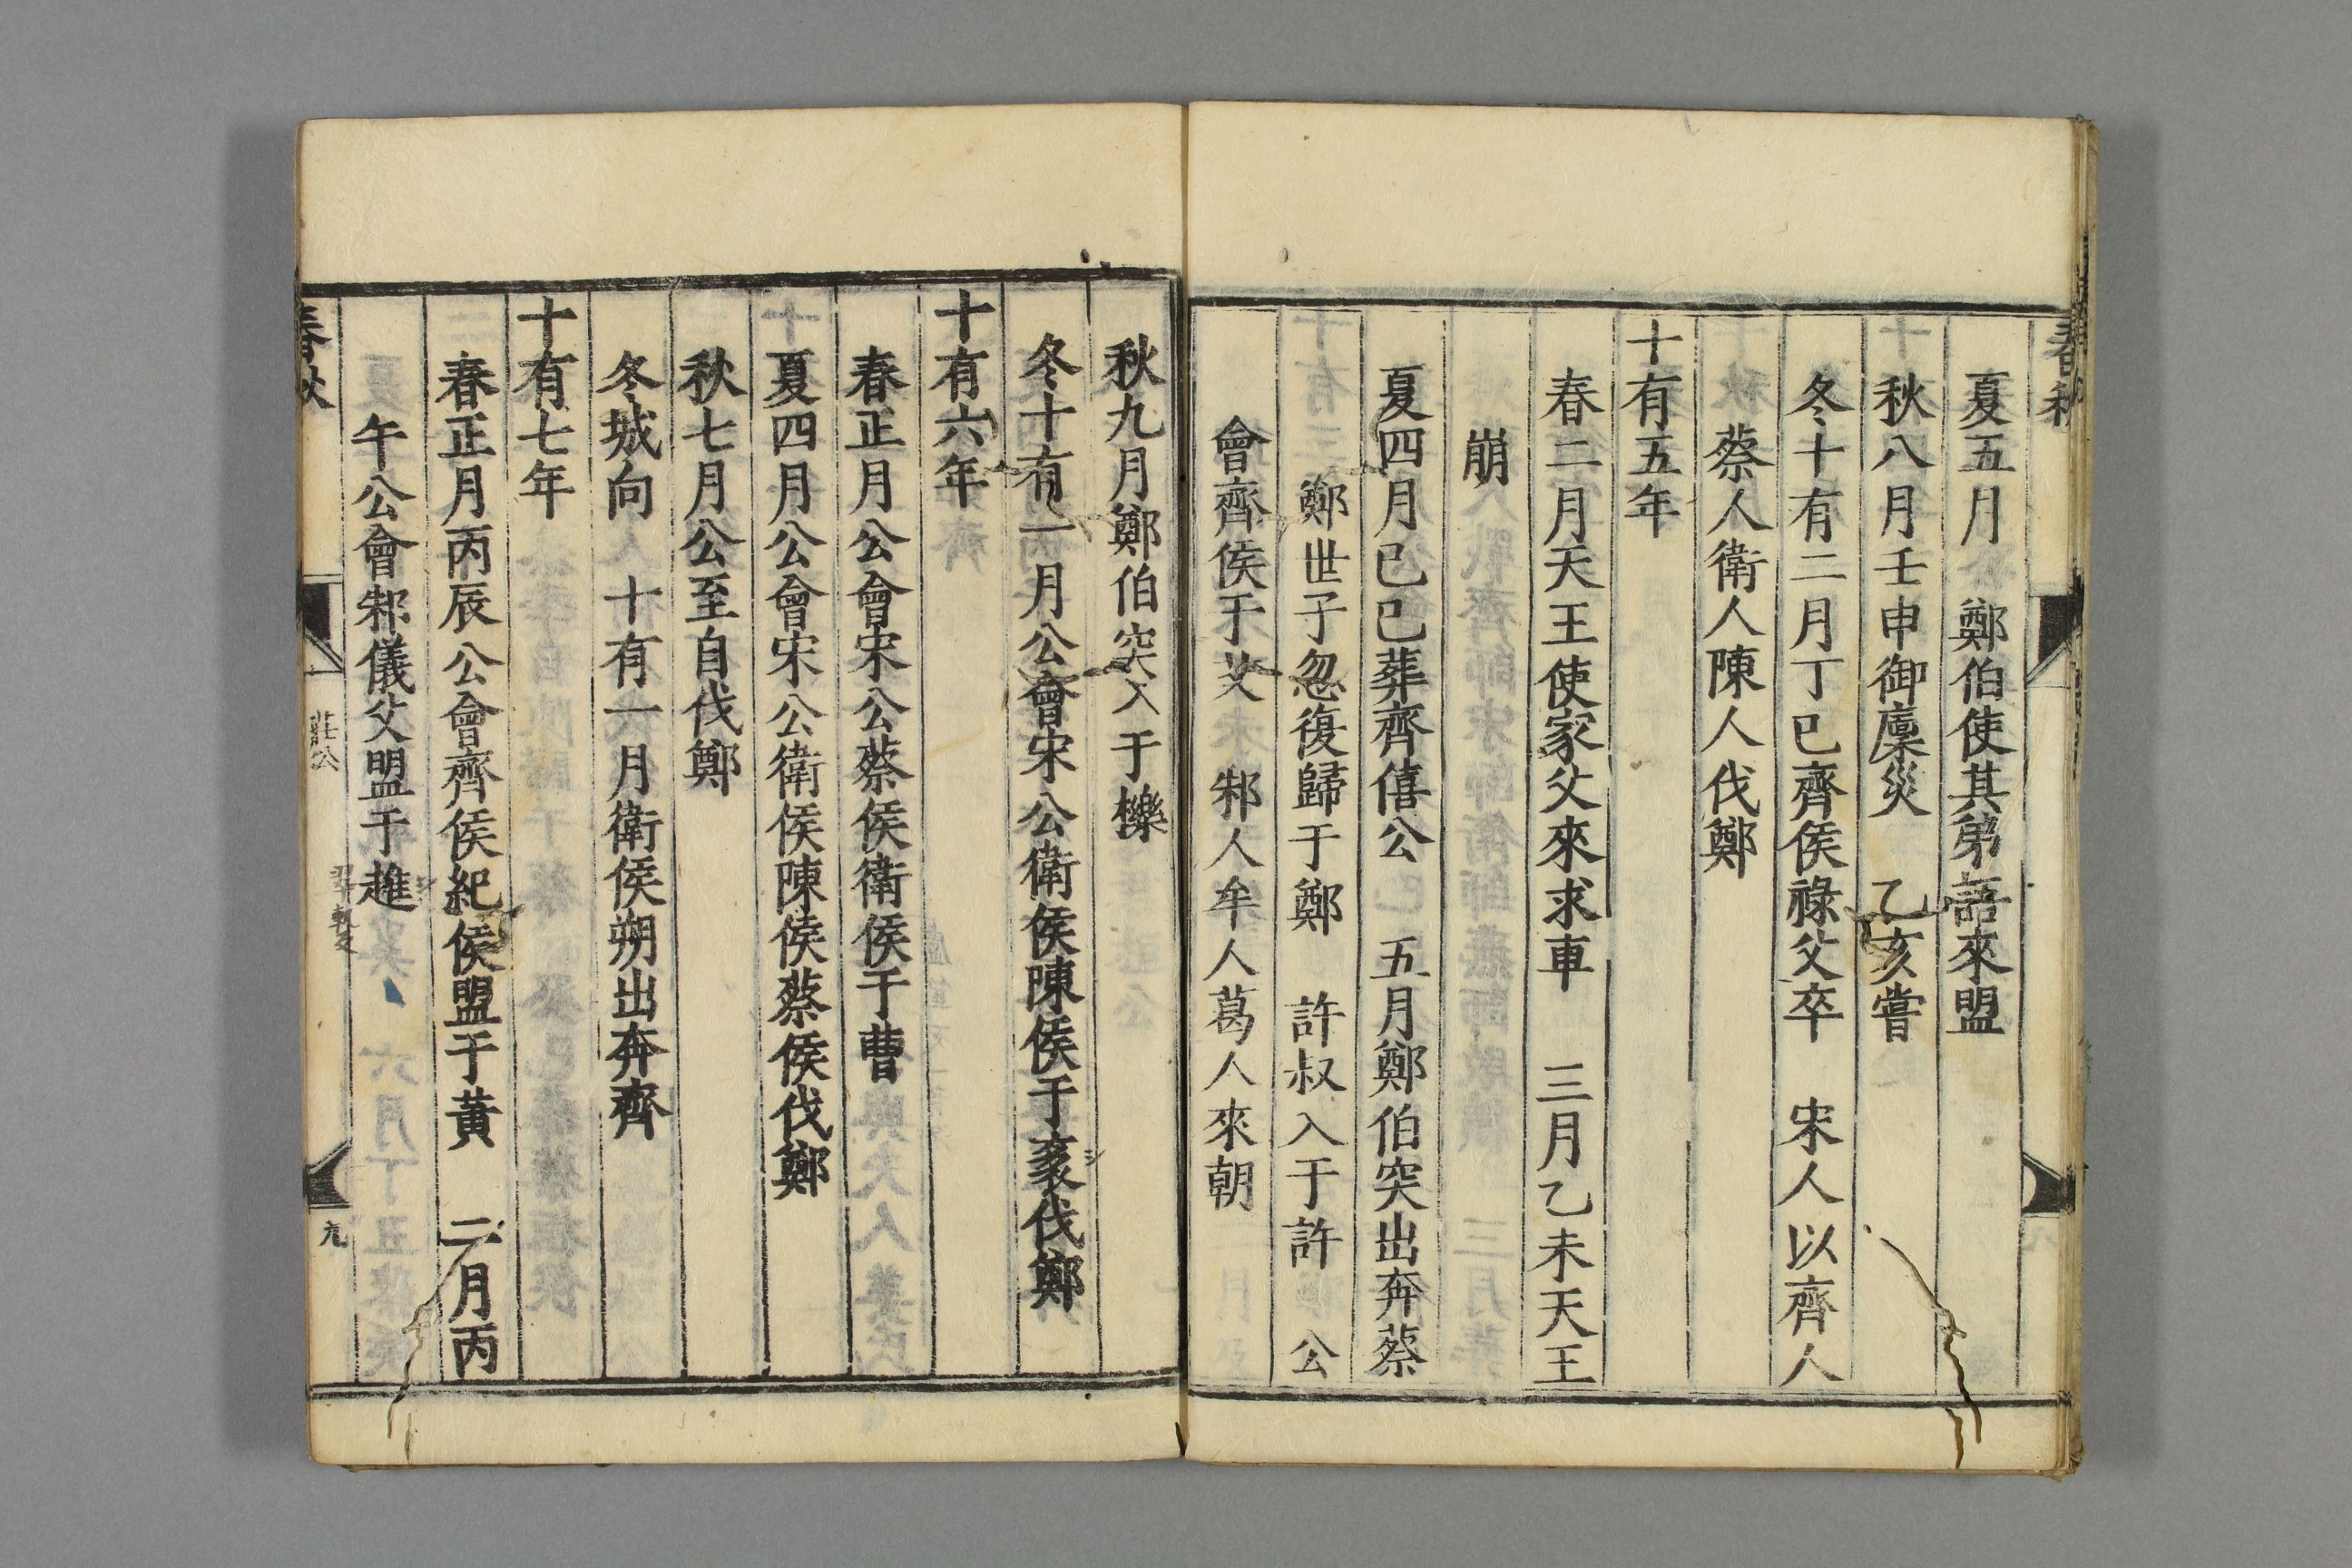 春秋
夏五月　鄭伯使其弟語來盟
秋八月壬申御廩災　乙亥嘗
冬十有二月丁巳齊侯祿父卒　宋人以齊人
蔡人衛人陳人伐鄭
十有五年
春二月天王使家父來求車　三月乙未天王
崩
夏四月己巳葬齊僖公　五月鄭伯突出奔蔡
鄭世子忽復歸于鄭　許叔入于許　公
會齊侯于艾　邾人牟人葛人來朝
秋九月鄭伯突入于櫟
冬十有一月公會宋公衛侯陳侯于袲伐鄭
十有六年
春正月公會宋公蔡侯衛侯于曹
夏四月公會宋公衛侯陳侯蔡侯伐鄭
秋七月公至自伐鄭
冬城向　十有一月衛侯朔出奔齊
十有七年
春正月丙辰公會齊侯紀侯盟于黃　二月丙
午公會邾儀父盟于趡
春秋
莊公
九